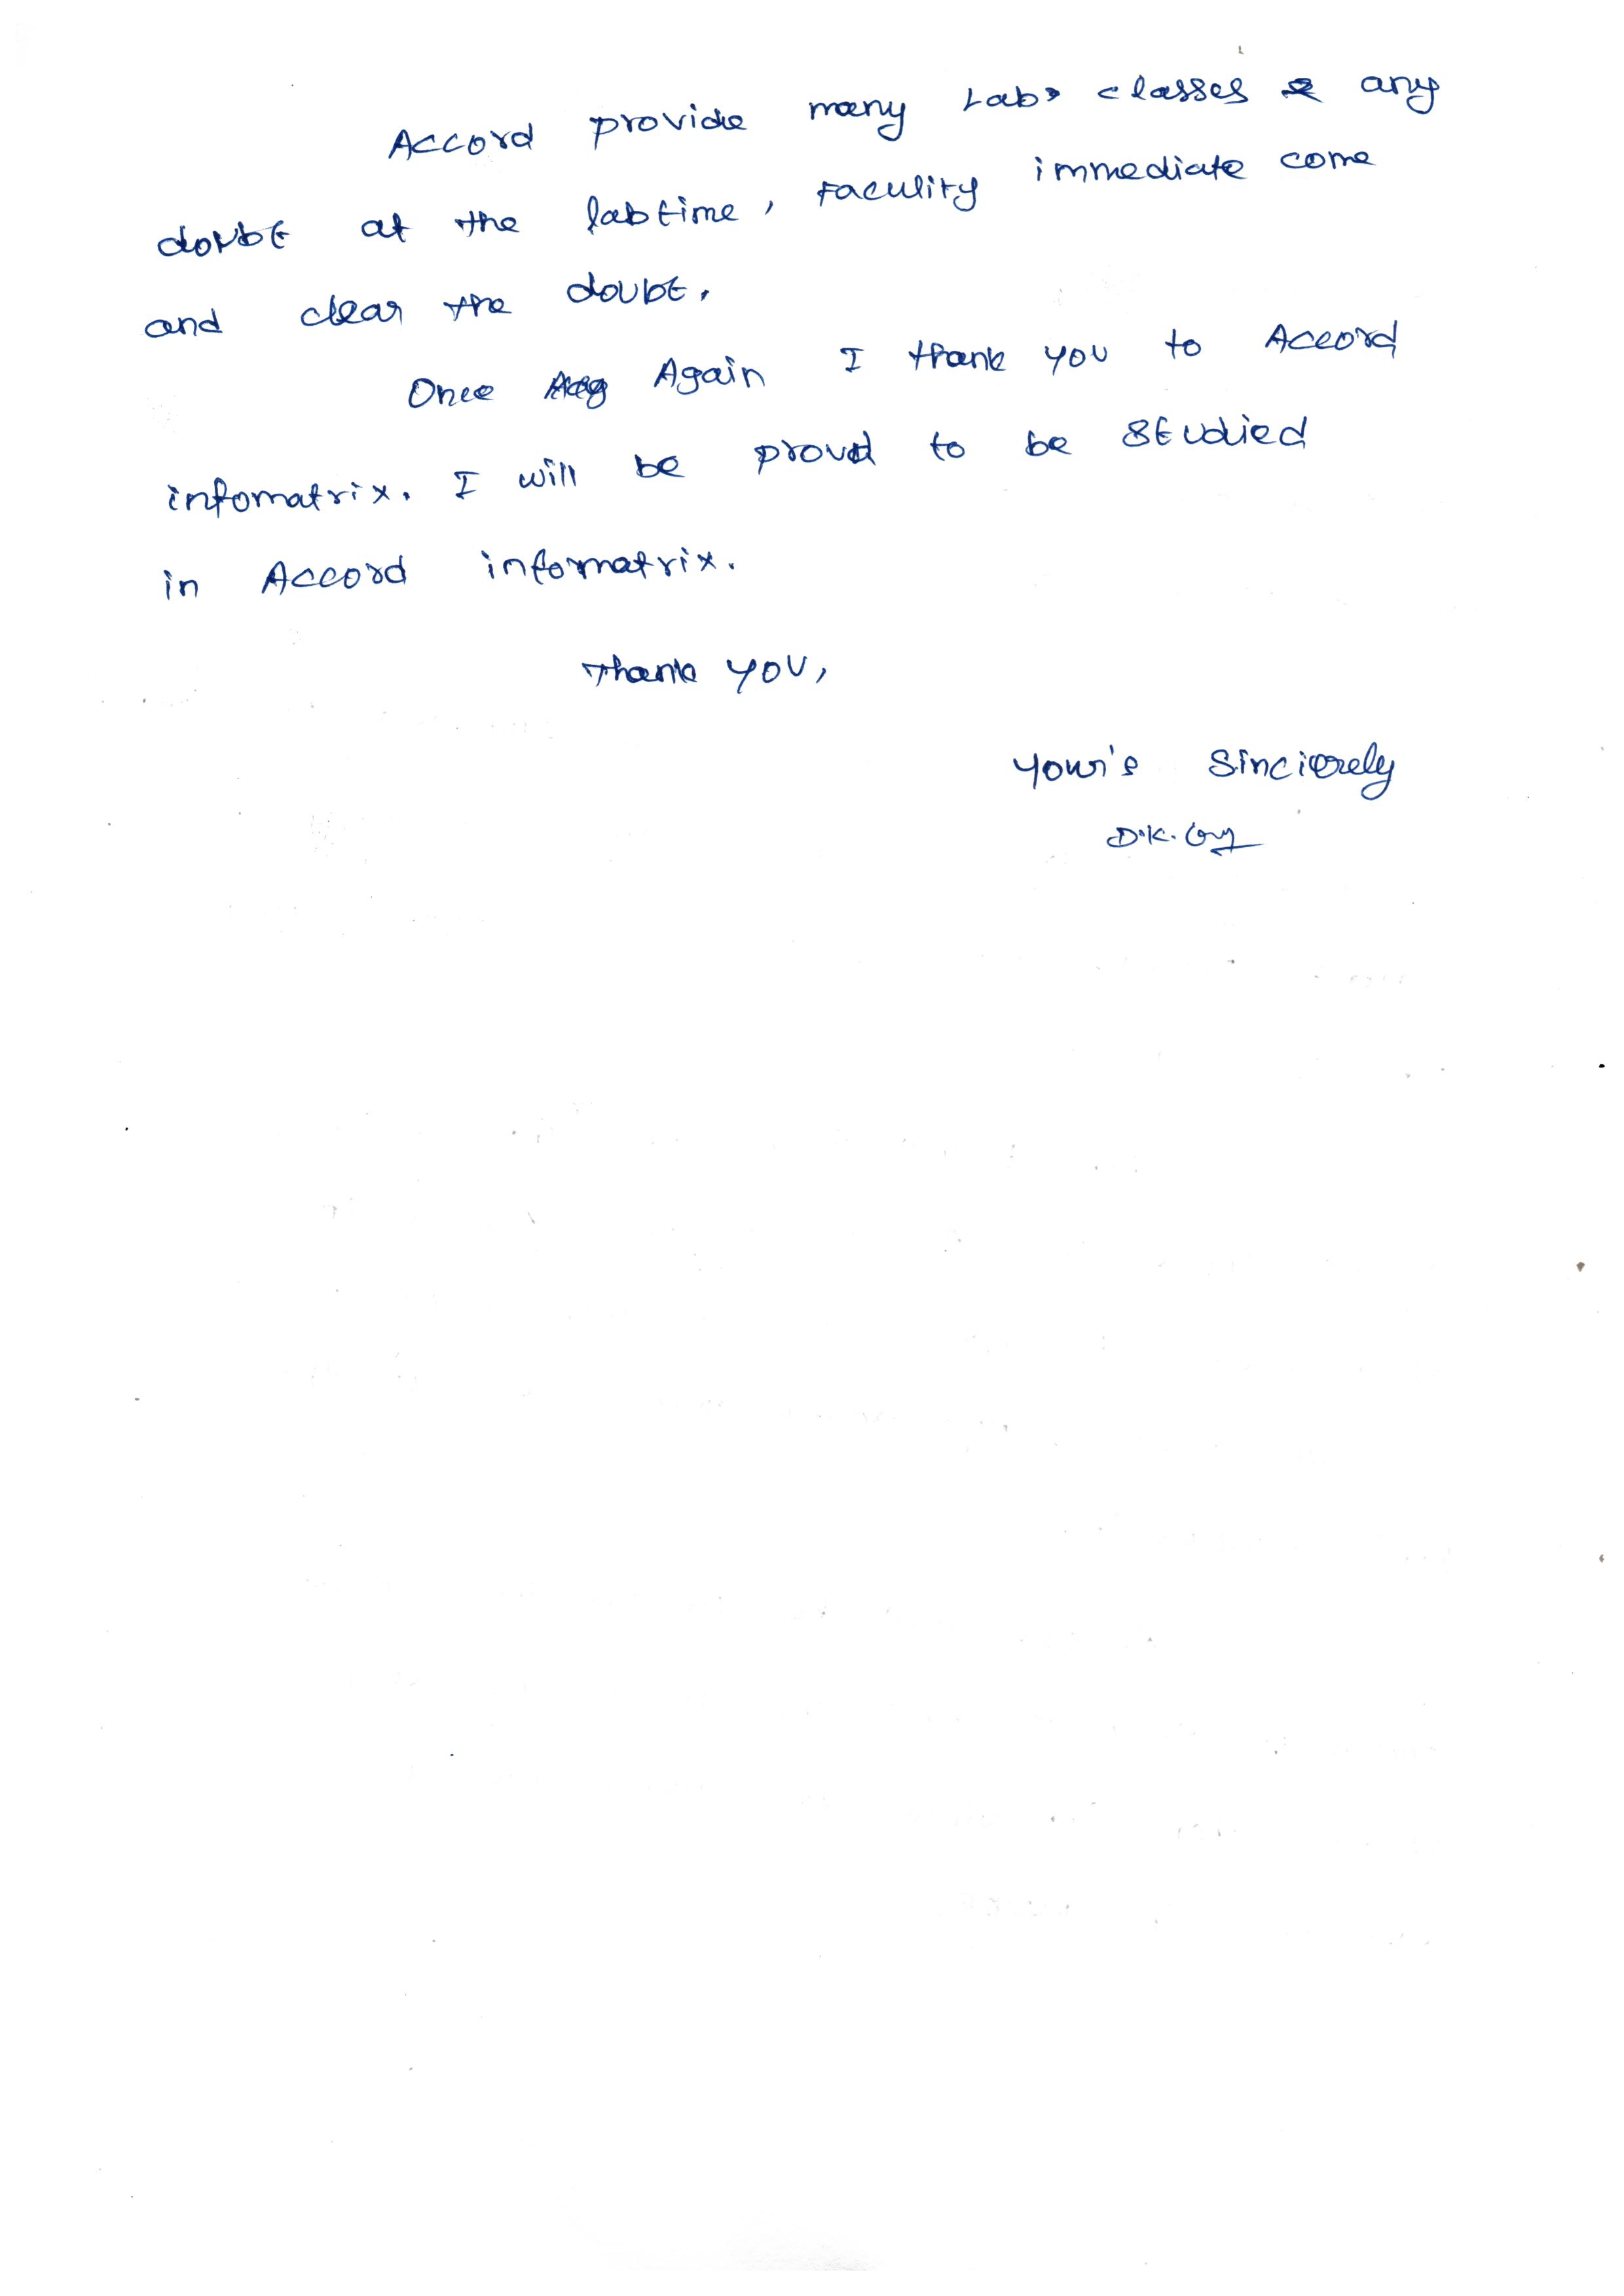 Accord provide many Labs classes & any
doubt at the labtime, Faculity immediate come
and clear the doubt.
Once Again I thank you to Accord
infomatrix. I will be proud to be Studied
in Accord infomatrix.
Thank you,
Your's Sincierely
D.K.